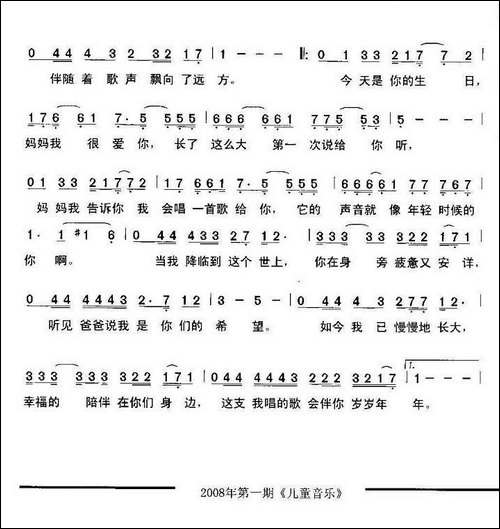 0 44 4 3 2 32 17 | 1 - - - |: 0 1 33 217 7 2 |
伴随着 歌声 飘向了远方。 今天是你的生 日,
176 61 7·5 555 | 666 661 775 53 | 5 - - - |
妈妈我 很爱你, 长了 这么大 第一 次说给 你 听,
01 33 21772 | 17 661 7·5 555 | 66661 77 767 |
妈 妈我 告诉你 我 会唱 一首歌 给你, 它的 声音就 像 年轻 时候的
1· 1 #1 6 | 0 44 433 27 12· | 33·3 322 271 1 |
你 啊。 当我 降临到 这个 世上, 你在身 旁 疲惫又 安 详,
0 44 4443 2·7 12 | 3 - 5 - | 0 44 4 3 227 12· |
听见 爸爸说我 是 你们的 希 望。 如今 我 已 慢慢地 长大,
333 333 322 171 | 044 4443 322 3217 | 1 - - - |
幸福的 陪伴 在你们 身 边, 这支 我唱的歌 会伴你 岁岁年 年。
1.
2008年第一期《儿童音乐》